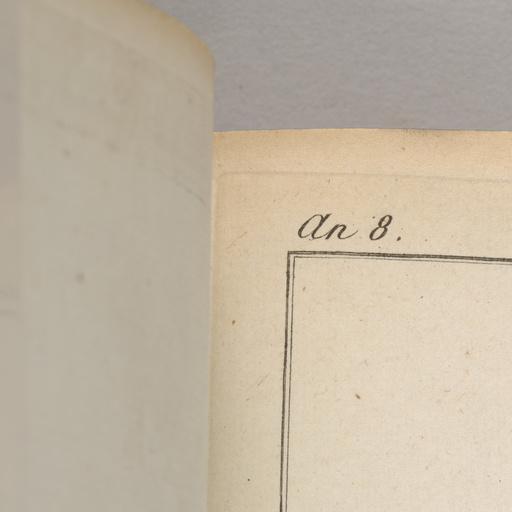 An 8.